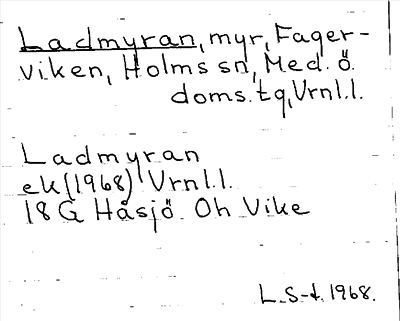 Ladmyran, myr, Fager-
viken, Holms sn, Med. ö.
doms. tg, Vrnl.l.
Ladmyran
ek (1968) Vrnl.l.
18 G Håsjö. Oh Vike
L.S-t. 1968.